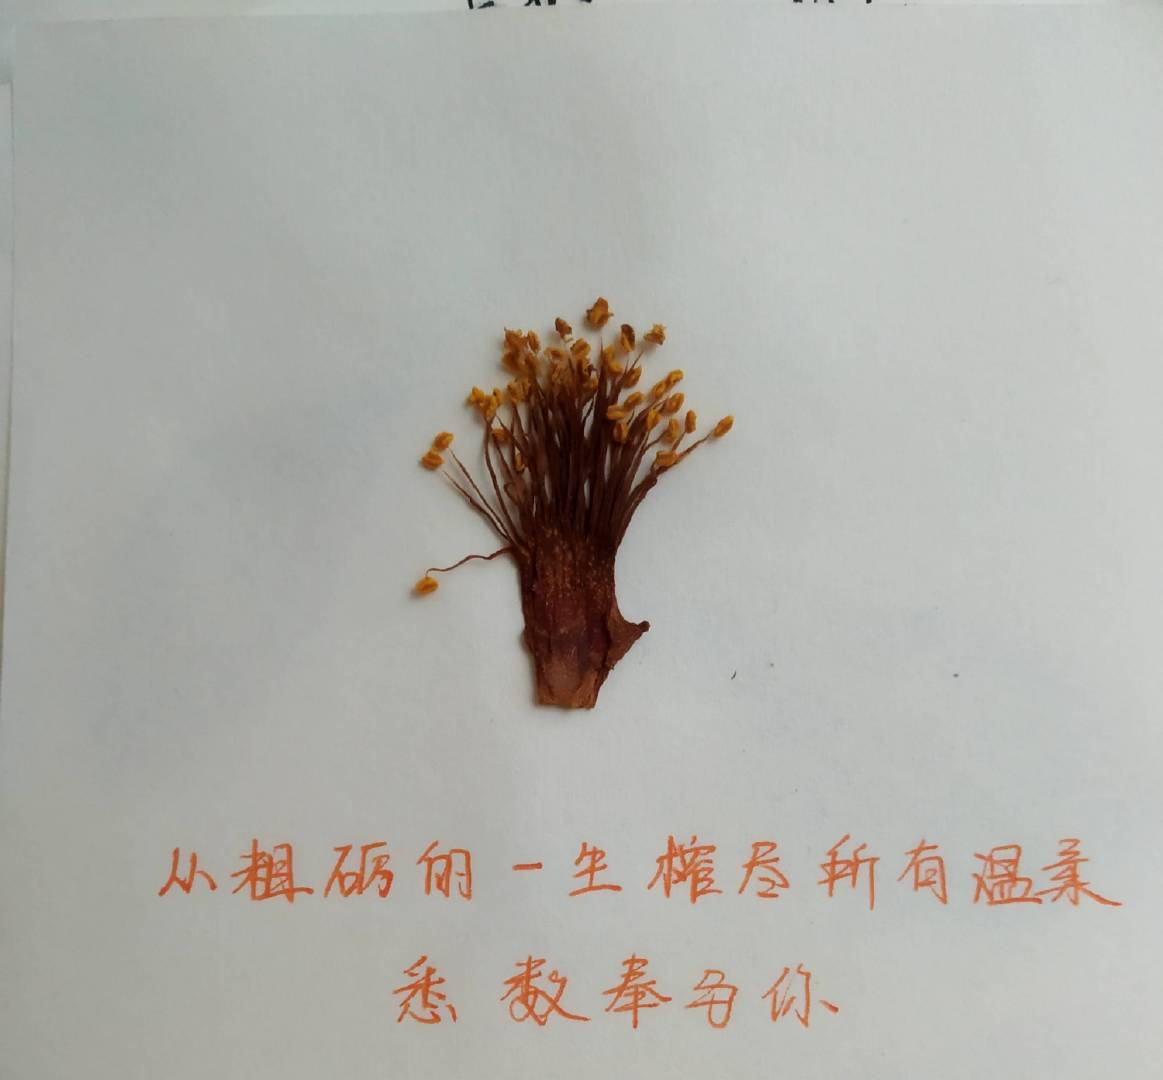 从粗砺的一生榨尽所有温柔
悉数奉与你